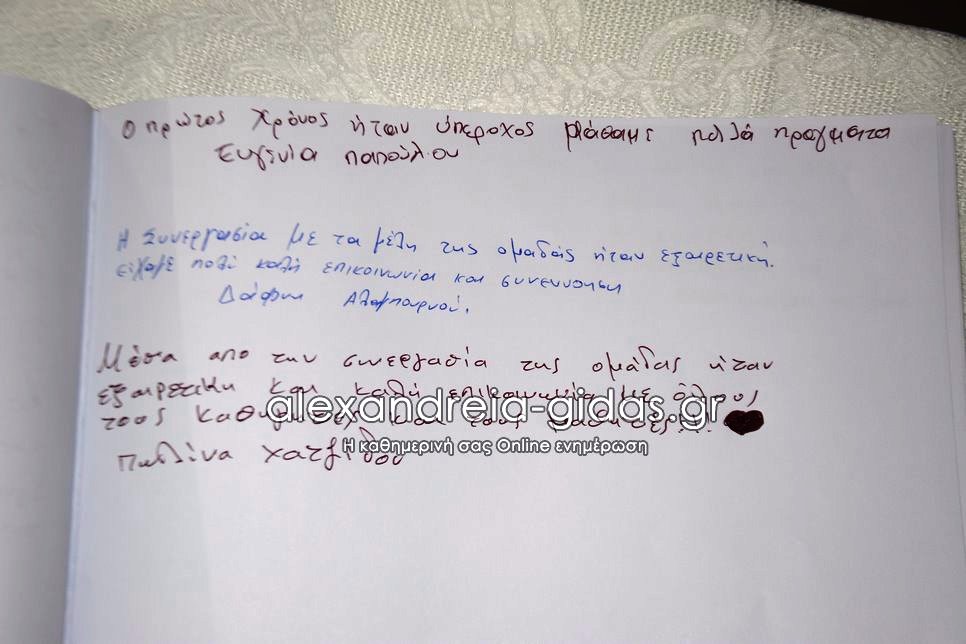 Ο πρώτος χρόνος ήταν ύπεροχος μάθαμε πολλά πραγματα
Ευγενία παπούλιου
Η συνεργασία με τα μέλη της ομαδάς ήταν εξαιρετική.
είχαμε πολύ καλή επικοινωνία και συνεννοηση
Δάφνη
Μέσα απο την συνεργασία της ομάδας ήταν
εξαιρετικη και καλή επικοινωνία με όλους
τους και τους
alexandreia-gidas.gr
Η καθημερινή σας Online ενημέρωση